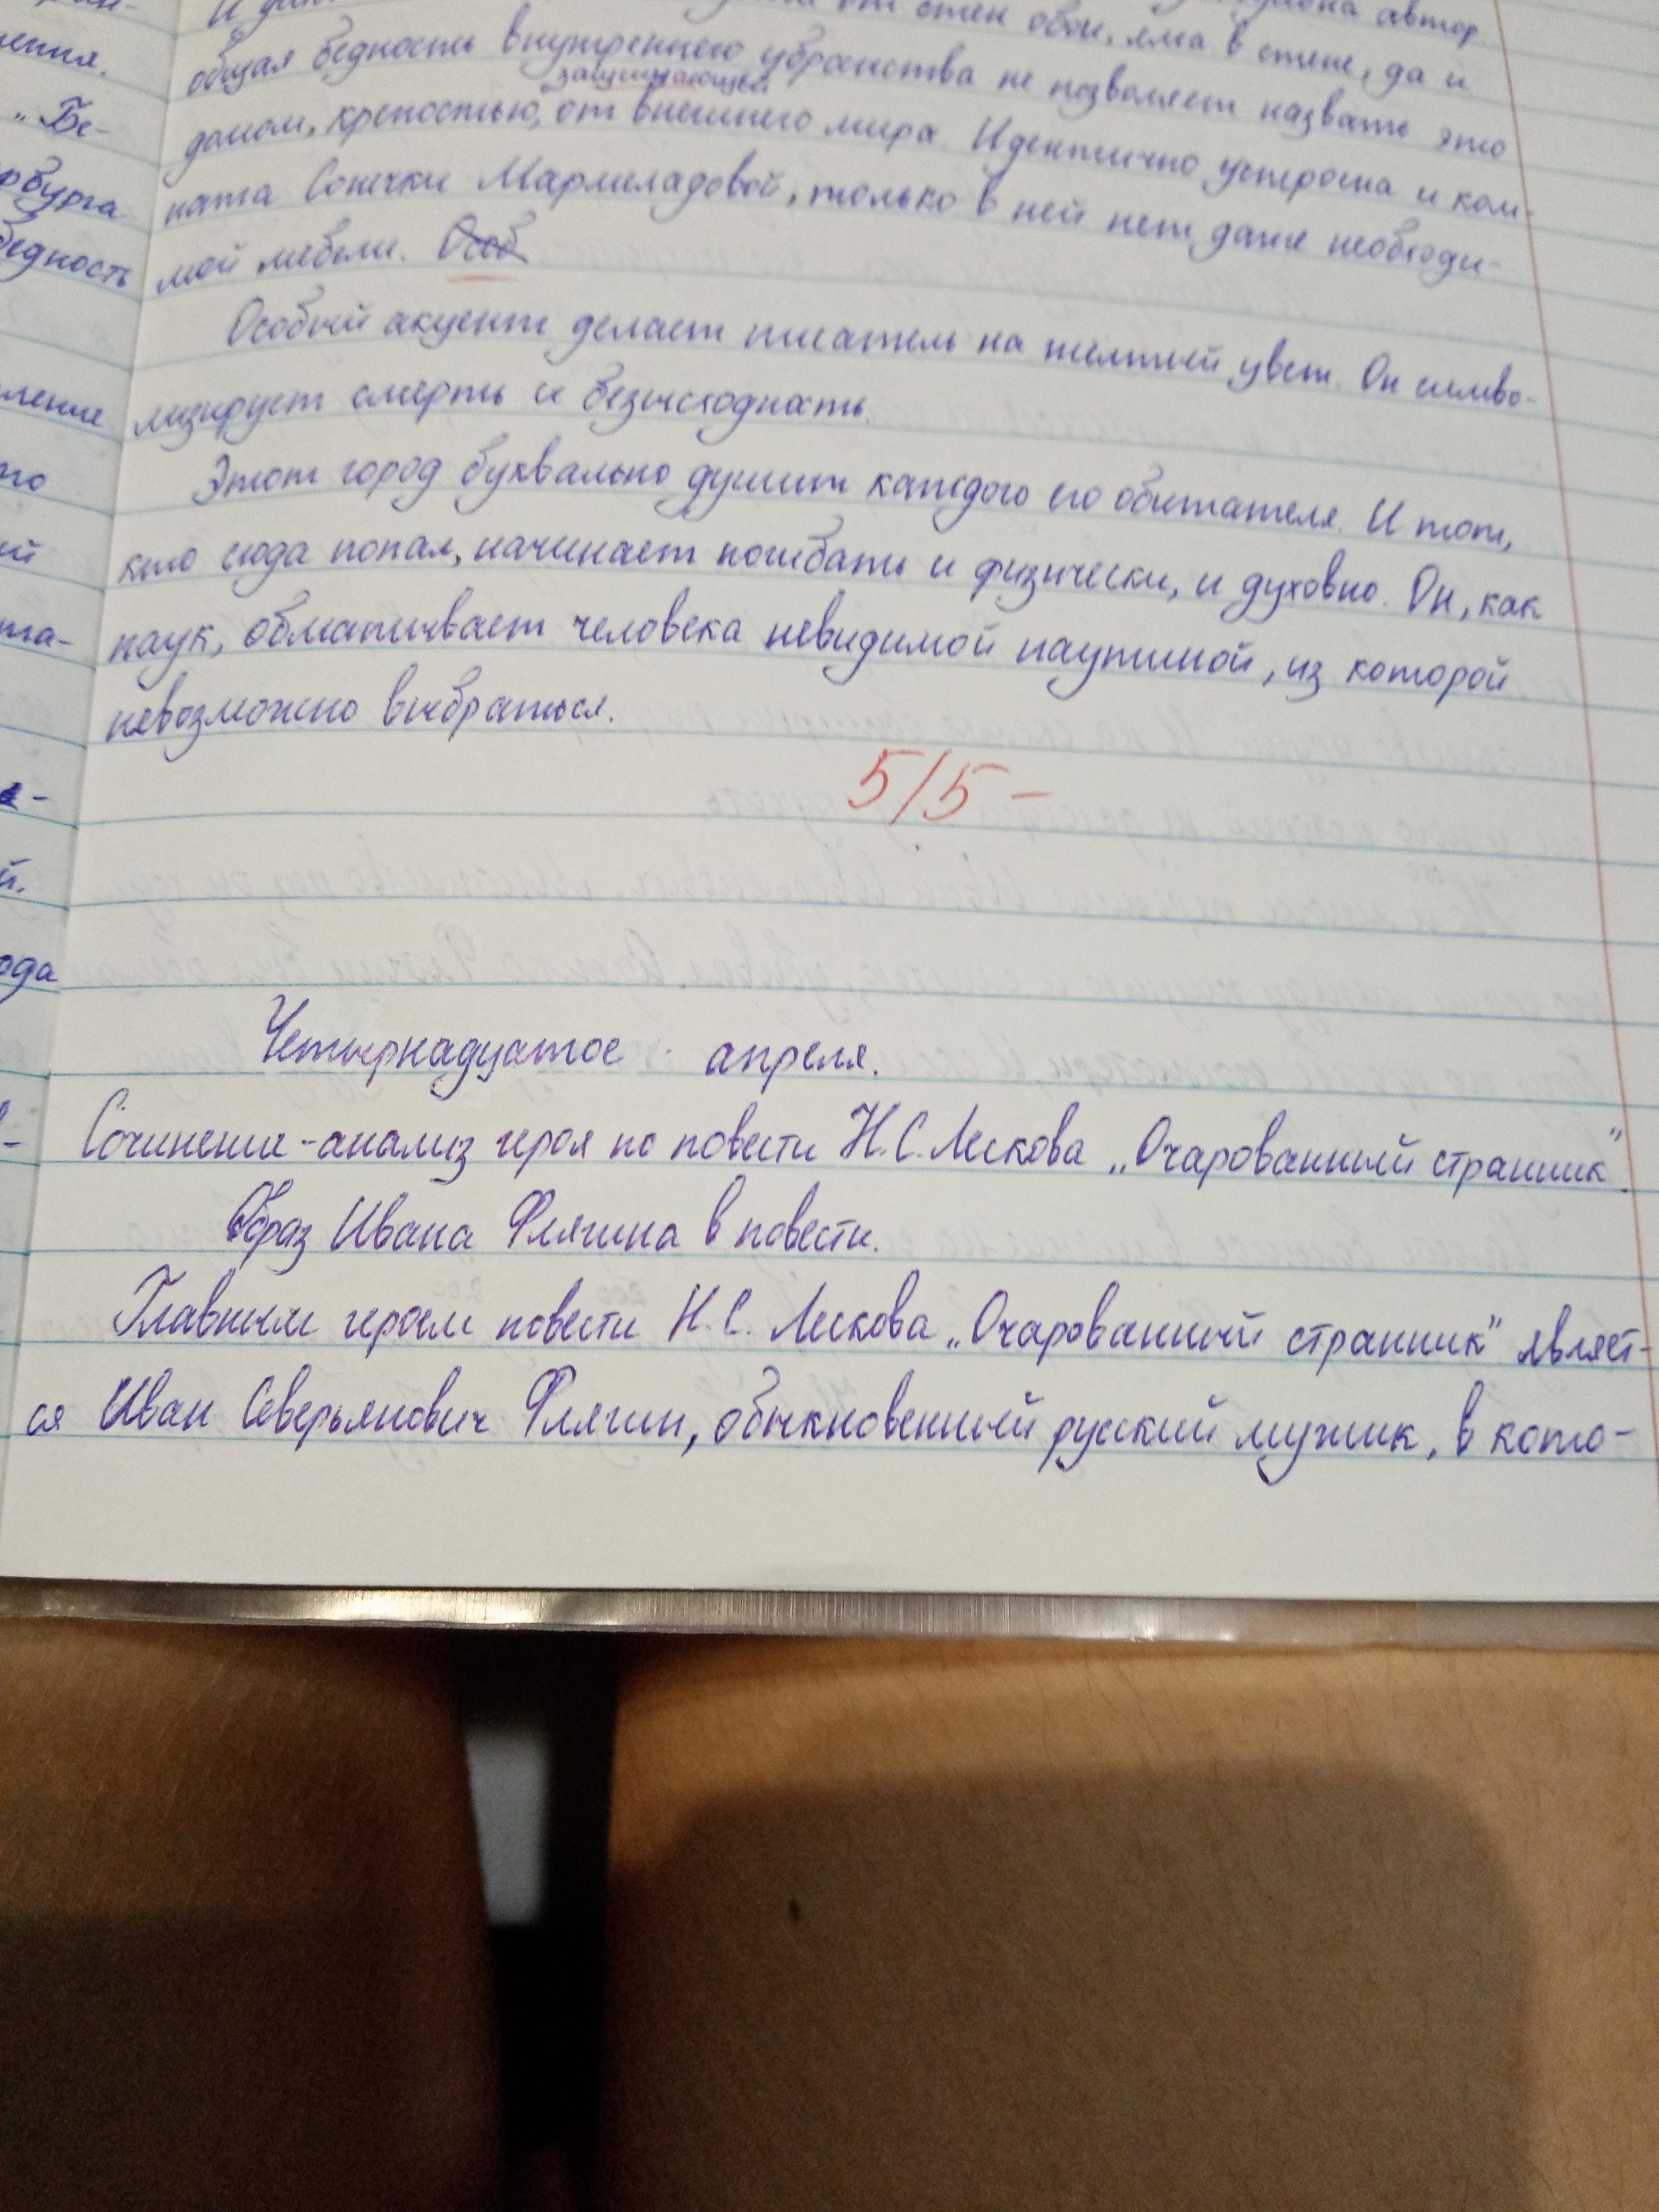 ения.
„Бе-
рбурга
бедность
ление
го
ий
та-
й.
ода
от стен обои, яма в стене, да и
автор
общая бедность внутреннего убранства не позволяет назвать это
защищающей
домом, крепостью, от внешнего мира. Идентично устроена и ком-
ната Сонечки Мармеладовой, только в ней нет даже необходи-
мой мебели. Особ
Особый акцент делает писатель на желтый цвет. Он симво-
лизирует смерть и безысходность.
Этот город буквально душит каждого его обитателя. И тот,
кто сюда попал, начинает погибать и физически, и духовно. Он, как
паук, обматывает человека невидимой паутиной, из которой
невозможно выбраться.
5/5-
Четырнадцатое апреля.
Сочинение-анализ героя по повести Н.С. Лескова „Очарованный странник".
Образ Ивана Флягина в повести.
Главным героем повести Н.С. Лескова „Очарованный странник" являет-
ся Иван Северьянович Флягин, обыкновенный русский мужик, в кото-